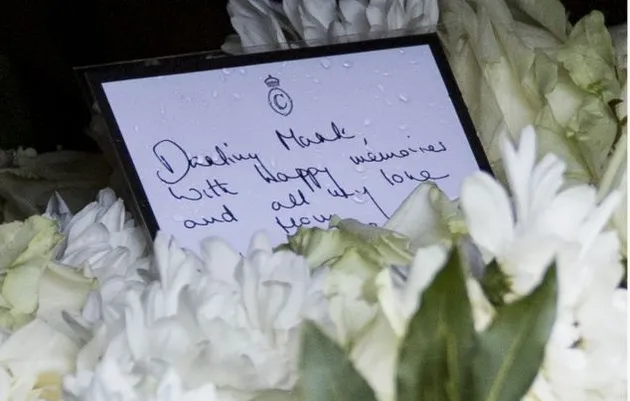 C
Darling Mark,
with happy memories
and all my love
from my